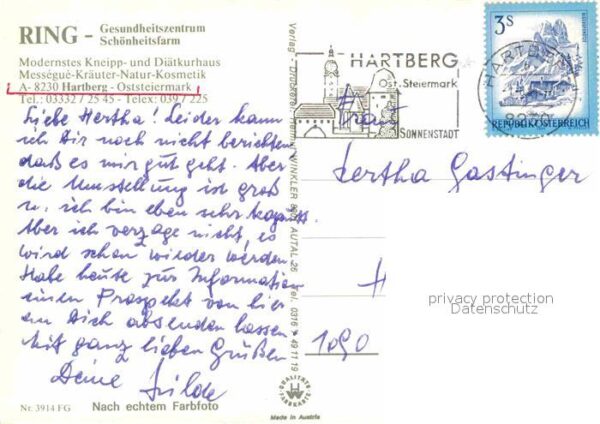 RING - Gesundheitszentrum
Schönheitsfarm
Modernstes Kneipp- und Diätkurhaus
Mességué-Kräuter-Natur-Kosmetik
A- 8230 Hartberg - Oststeiermark
Tel.: 03332 / 25 45 - Telex: 039 / 225
Liebe Hertha! Leider kann
ich Dir noch nicht berichten
daß es mir gut geht. Aber
die Umstellung ist groß
u. ich bin eben sehr
Aber ich verzage nicht, es
wird schon wieder werden.
Habe heute zur Information
einen Prospekt von hier
an Dich absenden lassen.
Mit ganz lieben Grüßen
Deine
Nr. 3914 FG
Nach echtem Farbfoto
Verlag - WINKLER AUTAL-26 Tel. 0316 49 11 19
QUALITÄTS FARBKARTE
Made in Austria
HARTBERG
Ost-Steiermark
SONNENSTADT
HARTBERG
3S
REPUBLIK ÖSTERREICH
Frau
Hertha Gastinger
1090
privacy protection
Datenschutz